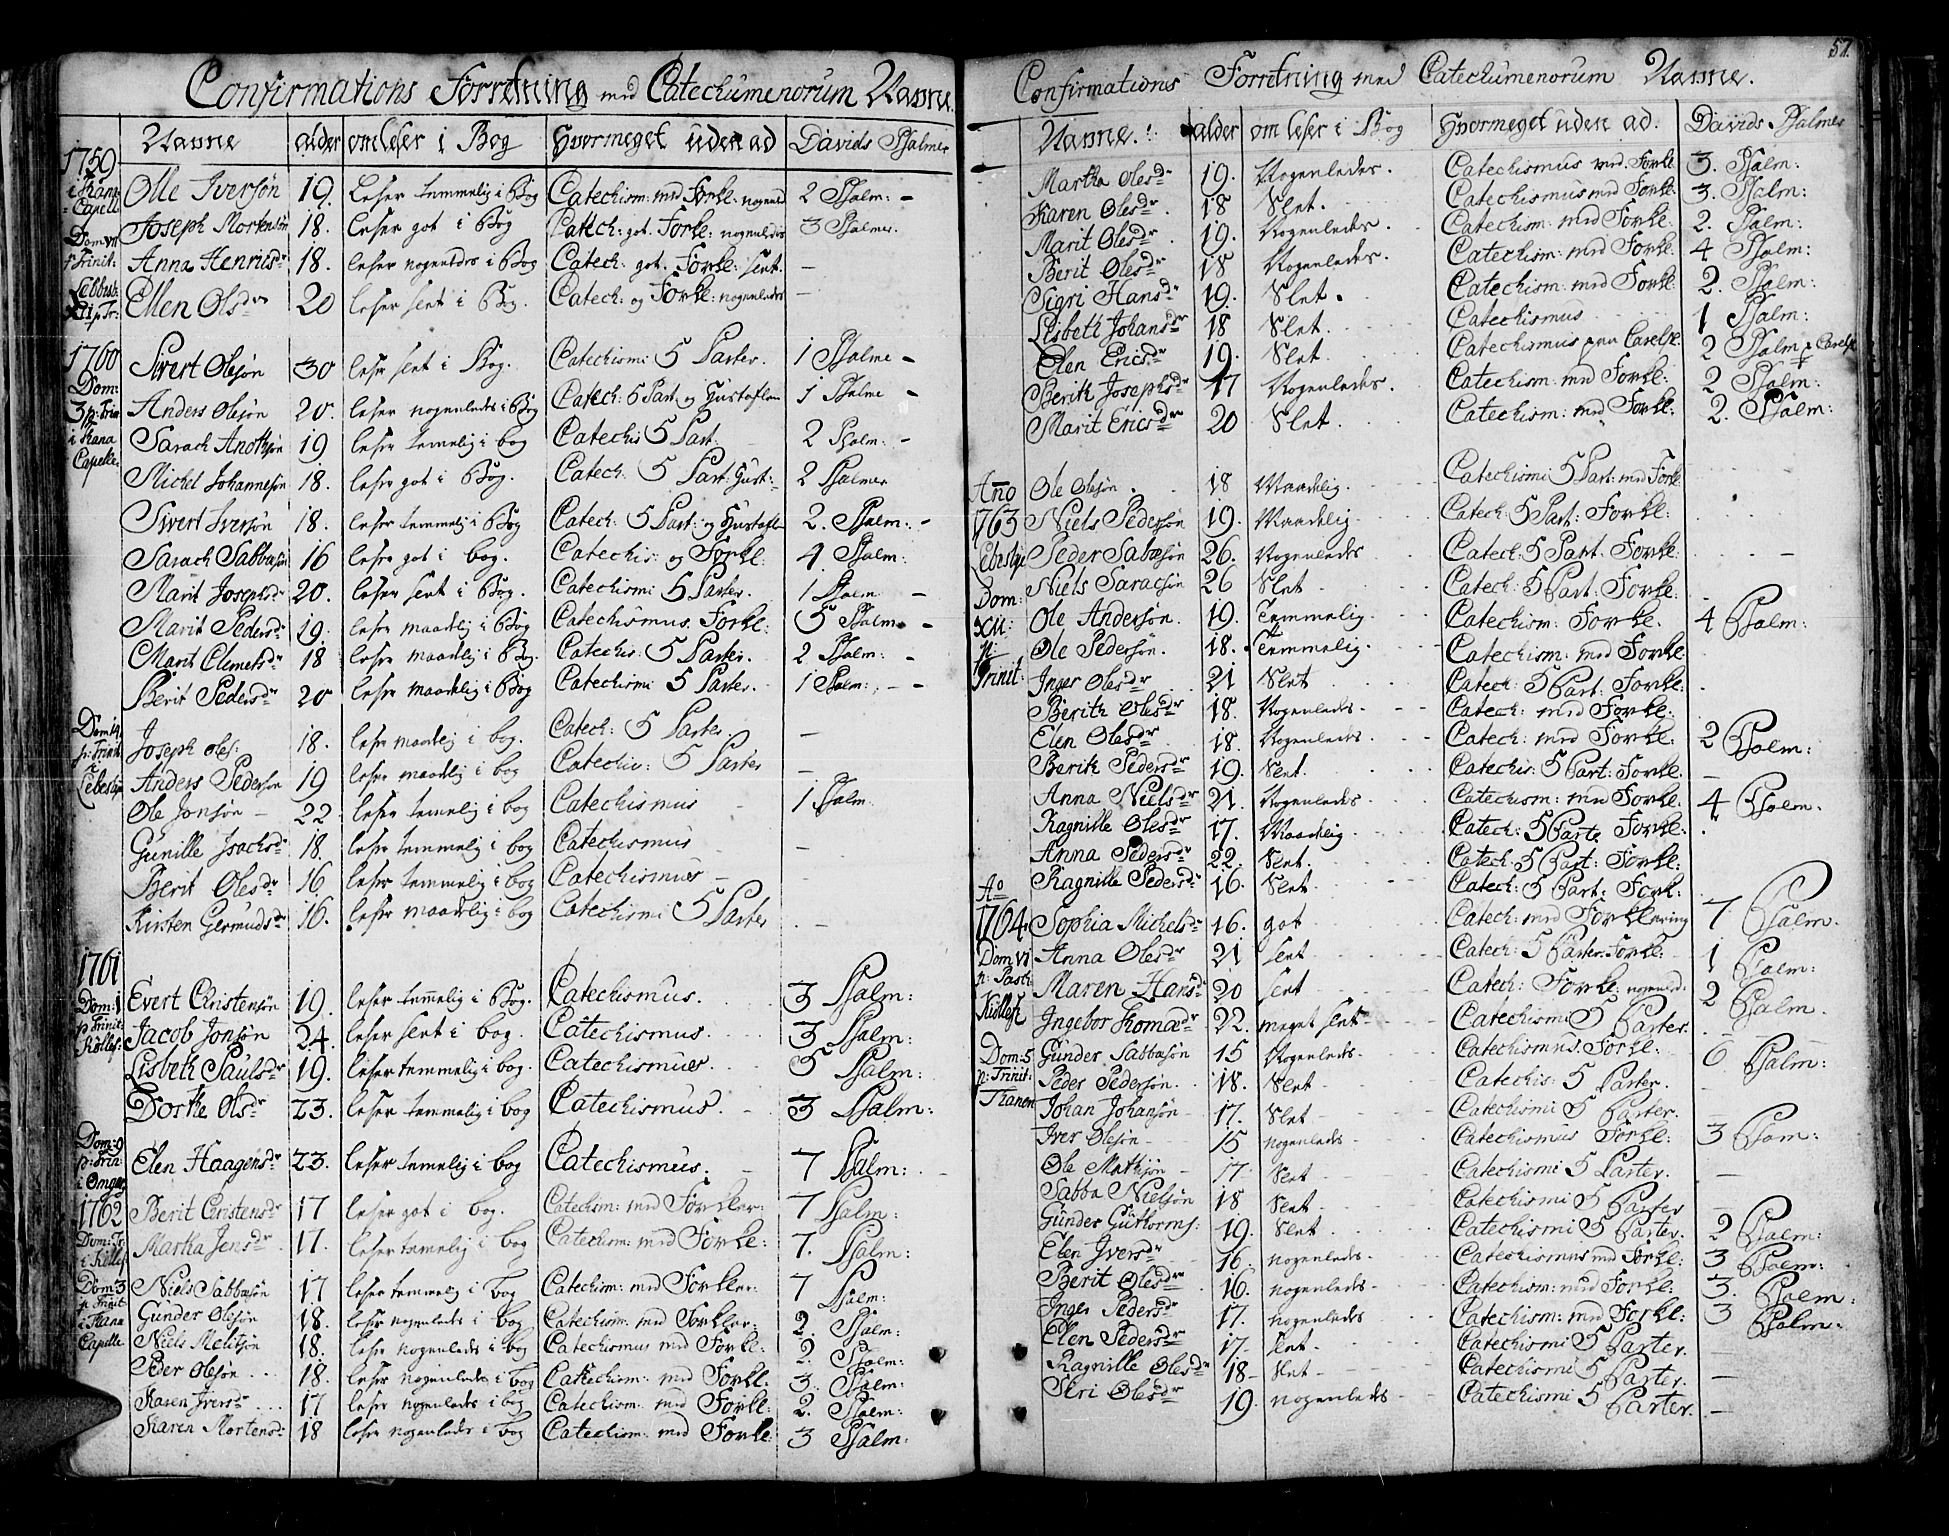 Confirmations Forretning med Catechumenorum Navne.
Navne alder om leser i Bog Hvormeget uden ad Davids Psalmer
1759
i Thana Capell
Olle Iversøn 19. Leser temmelig i Bog Catechism: med Forkl: nogenl 2 Psalm: -
Joseph Mortensøn 18. leser got i Bog Catech: got. Forkl: nogenledes 3 Psalmer.
Dom: VII p Trinit:
Anna Henrics dr 18. leser nogenledes i Bog Catech: got. Forkl: slet. -
Lebbesb: p Tr:
Ellen Ols dr 20 leser slet i Bog. Catech: og Forkl: nogenledes -
1760
Dom: 3 p: Trin i Tana Capelle.
Sivert Olesøn 30 lesr slet i Bog. Catechismi 5 Parter. 1 Psalme -
Anders Olesøn 20. leser nogenleds i Bog Catech: 5 Part og Hustafln 1 Psalme -
Sarach Anothsøn 19 leser temelig i bog Catechis 5 Part. 2 Psalm: -
Michel Johannesøn 18. lesr got i Bog. Catech: 5 Part: Hust:- 2 Psalmer
Sivert Iversøn 18. leser temmelig i Bog Catech: 5 Part: og Hustafln 2. Psalm: -
Sarach Sabbasøn 16 leser got i bog. Catechis: og Forkl: 4. Psalm:
Marit Josephs dr 20. leser slet i Bog. Catechismi 5 Parter. 1 Psalm -
Marit Peders dr 19. lesr maadelig i Bog Catechismus. Forkl: 5 Psalm. -
Marit Clemets dr 18 lesr maadlig i Bog. Catechis: 5 Parter. 2 Psalm: -
Berit Peders dr 20 leser maadelig i Bog Catechismi 5 Parter. 1 Psalm: - -
Dom: 14 p: Trinit i Lebesbye
Joseph oles: 18. lesr maadlig i bog. Catech: 5 Parter. -
Anders Pedersøn 19 lesr maadlig i bog Catechis: 5 Parter -
Ole Jonsøn - 22 leser temelig i bog Catechismus 1 Psalm.
Gunille Isachs dr 18. leser temmelig i bog Catechismus -
Berit Oles dr 16. lesr temmelig i bog Catechismus - -
Kirsten Germuds dr 16. leser maadlig i bog Catechismi 5 Parter . -
1761
Dom: 1 p Trinit: Kiøllef:
Evert Christensøn 19. leser temelig i Bog. Catechismus. 3 Psalm:
Jacob Jonsøn 24. leser slet i bog. Catechismus. 3 Psalm:
Lisbeth Pauls dr 19. leser temmelig i bog. Catechismus. 5 Psalm:
Dorthe Ols dr 23. leser temmelig i bog Catechismus. 3 Psalm:
Dom: 9 p: Trin: i Omgan
Elen Haagens dr 23. leser temelig i bog Catechismus. 7 Psalm:
1762
Dom: Tr i Kiøllef
Berit Christens dr 17 leser got i bog. Catechism: med Forkler: 7 Psalm:
Martha Jens dr 17. leser temelig i bog Catechism: med Forkl: 7. Psalm:
Dom: 3 p Trinit i Thana Capelle
Niels Sabbasøn 17 leser temmelig i bog Catechism: med Forkler: 7 Psalm:
Gunder Olesøn 18. leser nogenleds i bog Catechism: med Forkler: 2. Psalm:
Niels Melitsøn 18. lesr nogenleds i bog Catechismus med Forkl: 2. Psalm:
Per Olesøn ... 18. leser nogenleds i bog Catechism: med Forkl. 3. Psalm:
Karen Ivers dr ... 17 leser nogenleds i bog Catechism: med Forkl: 2. Psalm:
Karen Mortens dr 18 leser nogenleds i bog Catechism: med Forkl: 3 Psalm:
57.
Confirmations Forretning med Catechumenorum Navne.
Navne.: alder om leser i Bog Hvormeget uden ad. Davids Psalmer
Martha Oles dr 19. Nogenledes. Catechismus med Forkl: 3. Psalm:
Karen Oles dr 18 Slet. Catechismus med Forkl: 3. Psalm:
Marit Oles dr 19. Nogenledes. Catechism: med Forkl: 2. Psalm:
Berit Oles dr 18 Nogenledes. Catechism: med Forkl: 4 Psalm:
Sigri Hans dr 19. Slet. Catechism: med Forkl: 2. Psalm:
Lisbeth Johans dr 18 Slet. Catechismus 1 Psalm:
Elen Erics dr 19. Slet. Catechismus paa Carelsk. 2 Psalm p Carelsk
Berith Josephs dr 17 Nogenledes. Catechism: med Forkl: 2 Psalm:
Marit Erics dr 20 Slet. Catechism: med Forkl: 2. Psalm:
Año 1763
Lebesbye Dom: XII: p: Trinit:
Ole Olesøn . 18 Maadelig. Catechismi 5 Part: med Forkl
Niels Pedersøn 19. Maadelig. Catech: 5 Part: Forkl:
Peder Sabasøn 26. Nogenledes Catech: 5 Part. Forkl: -
Niels Saracsøn 26 Slet Catech: 5 Part: Forkl:
Ole Andersøn. 19. Temmelig. Catechism: Forkl: 4 Psalm:
Ole Pedersøn. 18. Temmelig. Catechism: med Forkl:
Inger Oles dr 21 Slet Catech: 5 Part: Forkl: .
Berith Oles dr 18. Nogenleds. Catech: med Forkl:
Elen Oles dr 18. Nogenleds. Catech: med Forkl: 2 Psalm:
Berith Peders dr 19. Slet. Catechis: 5 Part: Forkl. -
Anna Niels dr 21. Nogenledes. Catechism: med Forkl. 4 Psalm:
Ragnille Oles dr 17. Maadelig. Catech: 5 Parte Forkl: .
Anna Peders dr 22. Slet. Catech: 5 Part: Forkl:
Ragnille Peders dr 16. Slet. Catech: 5 Part: Forkl:
Ao 1764
Dom VI p: Pasch: Kiøllefi
Sophia Michels dr 16. got Catech: med Forklaring 7 Psalm.
Anna Oles dr 21 slet. Catech: 5 Parter. Forkl: 1 Psalm:
Maren Hans dr 20 slet Catech: Forkl: nogenled: 2 Psalm.
Ingebor Thomæ dr 22. meget slet Catechismi 5 Parter. .
Dom: 5 p: Trinit: Thanen
Gunder Sabbasøn 15 Nogenleds. Catechismus. Forkl: 6 Psalm:
Peder Pedersøn. 18. Slet Catechis: 5 Parter. -
Johan Johansøn 17. Slet Catechismi 5 Parter. -
Iver Olesøn 15 nogenleds Catechismus Forkl: 3 Psam:
Ole Mathsøn 17. Slet Catechismi 5 Parter. -
Sabba Nielsøn 18 Slet. Catechismi 5 Parter -
Gunder Guthorms: 19. Slet. Catechismi 5 Parter. 2 Psalm:
Elen Ivers dr 16. nogenleds. Catechismus md Forkl: 3 Psalm:
Berit Oles dr 16. nogenleds. Catechism: med Forkl: 3. Psalm:
Inger Peders dr 17. nogenleds Catechism: med Forkl: 3 Psalm:
Elen Peders dr 17. Slet. Catechismi 5 Parter. -
Ragnille Oles dr 18 Slet Catechismi 5 Parter. -
Siri Oles dr 19. nogenleds Catechismi 5 Parter. -